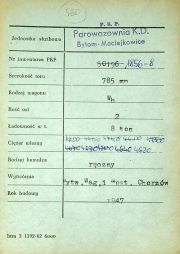 580
P. K. P.
Jednostka służbowa
Parowozownia K.D.
Bytom-Maciejkowice
Nr inwentarza PKP 50156 1856-8
Szerokość toru 785 mm
Rodzaj wagonu Wh
Ilość osi 2
Ładowność w t. 8 ton
Ciężar własny
4640 4620
Rodzaj hamulca ręczny
Wytwórnia Wytw. Wag. i Most. Chorzów
Rok budowy 1947